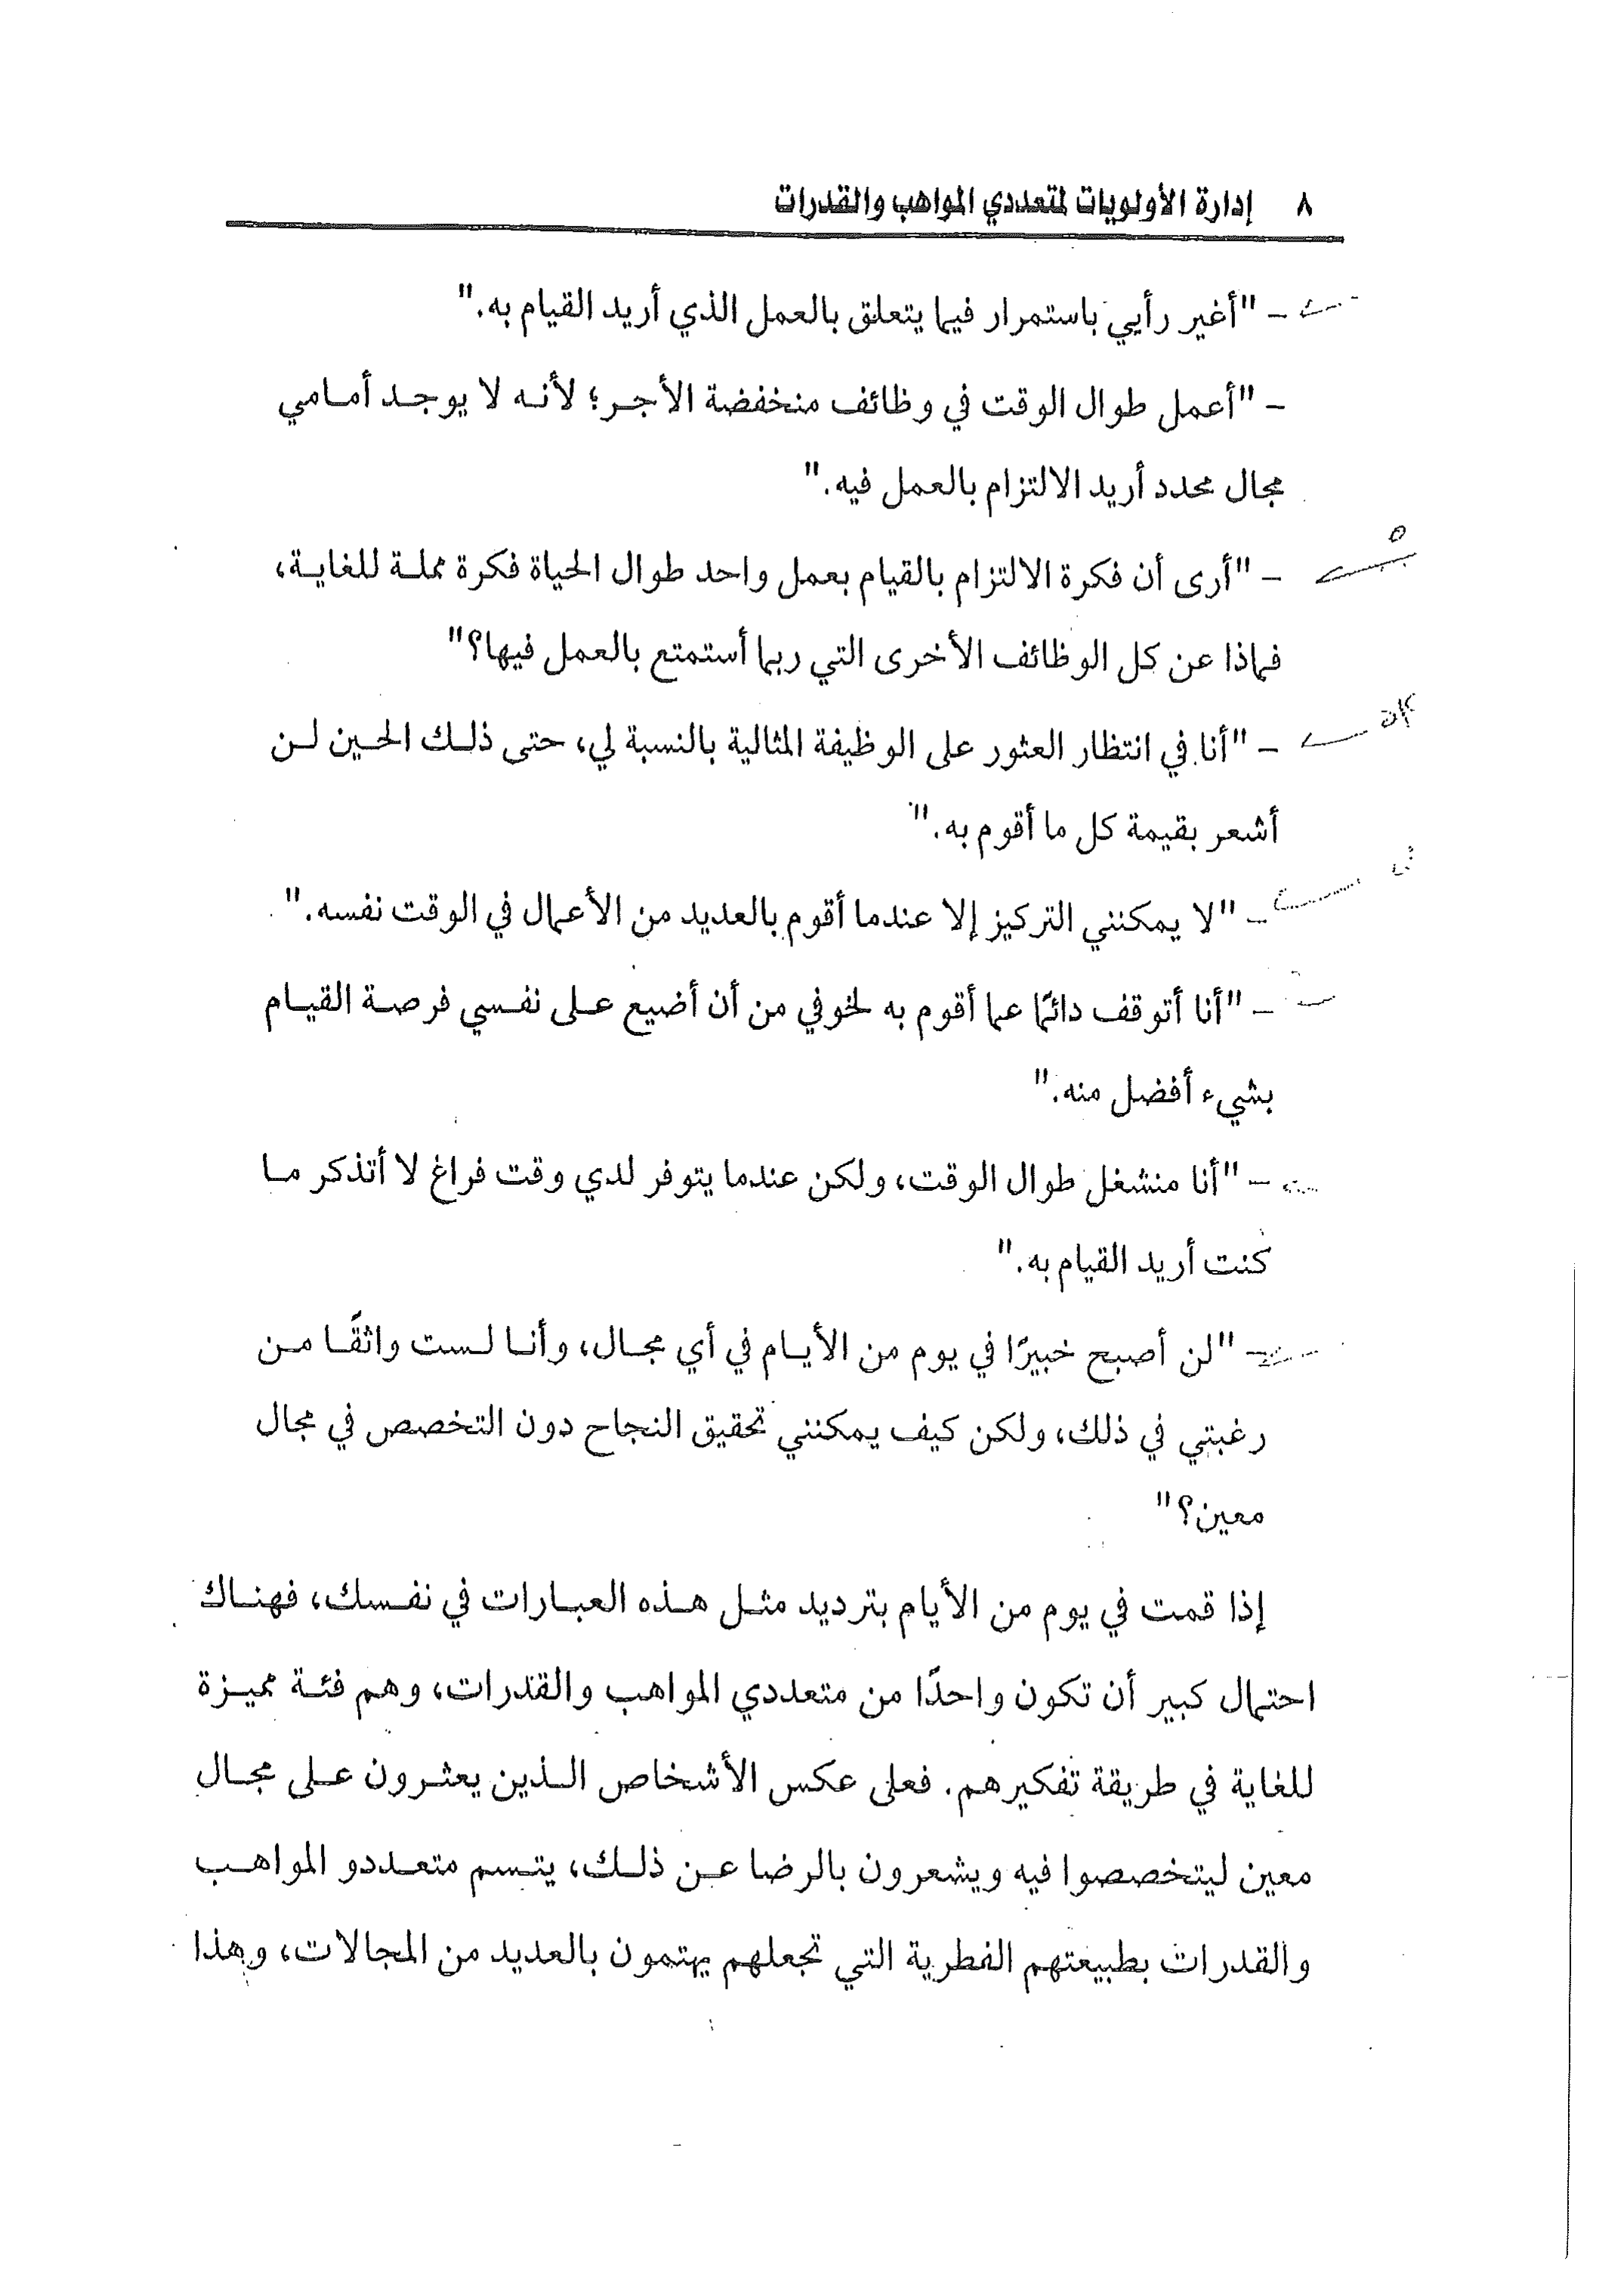 ٨ إدارة الأولويات لمتعددي المواهب والقدرات
– "أغير رأيي باستمرار فيما يتعلق بالعمل الذي أريد القيام به."
– "أعمل طوال الوقت في وظائف منخفضة الأجر؛ لأنه لا يوجد أمامي
مجال محدد أريد الالتزام بالعمل فيه."
– "أرى أن فكرة الالتزام بالقيام بعمل واحد طوال الحياة فكرة مملة للغاية،
فماذا عن كل الوظائف الأخرى التي ربما أستمتع بالعمل فيها؟"
– "أنا في انتظار العثور على الوظيفة المثالية بالنسبة لي، حتى ذلك الحين لن
أشعر بقيمة كل ما أقوم به."
– "لا يمكنني التركيز إلا عندما أقوم بالعديد من الأعمال في الوقت نفسه."
– "أنا أتوقف دائمًا عما أقوم به لخوفي من أن أضيع على نفسي فرصة القيام
بشيء أفضل منه."
– "أنا منشغل طوال الوقت، ولكن عندما يتوفر لدي وقت فراغ لا أتذكر ما
كنت أريد القيام به."
– "لن أصبح خبيرًا في يوم من الأيام في أي مجال، وأنا لست واثقًا من
رغبتي في ذلك، ولكن كيف يمكنني تحقيق النجاح دون التخصص في مجال
معين؟"
إذا قمت في يوم من الأيام بترديد مثل هذه العبارات في نفسك، فهناك
احتمال كبير أن تكون واحدًا من متعددي المواهب والقدرات، وهم فئة مميزة
للغاية في طريقة تفكيرهم. فعلى عكس الأشخاص الذين يعثرون على مجال
معين ليتخصصوا فيه ويشعرون بالرضا عن ذلك، يتسم متعددو المواهب
والقدرات بطبيعتهم الفطرية التي تجعلهم يهتمون بالعديد من المجالات، وهذا